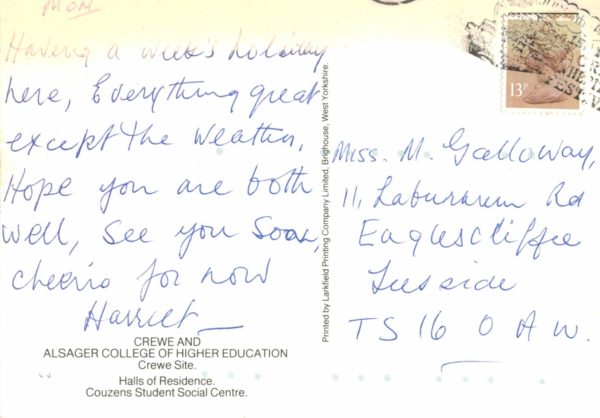 Mon
Having a week's holiday
here, Everything great
except the weather,
Hope you are both
well, See you soon,
cheerio for now
Harriet
CREWE AND
ALSAGER COLLEGE OF HIGHER EDUCATION
Crewe Site.
Halls of Residence.
Couzens Student Social Centre.
Printed by Larkfield Printing Company Limited, Brighouse, West Yorkshire.
13P
Miss. M. Galloway,
11, Laburnum Rd
Eaglescliffe
Teesside
TS16 0AW.